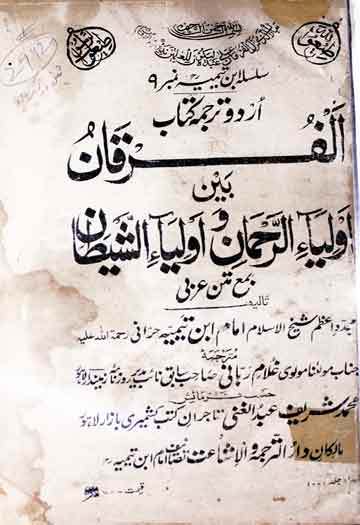 سلسلہ ابن تیمیہؒ نمبر ۹
اُردو ترجمہ کتاب
الفُرقان
بین
اولیاء الرّحمان و اولیاء الشیطان
بمع متن عربی
تالیف
مجدد اعظم شیخ الاسلام امام ابن تیمیہ حرانی رحمۃ اللہ علیہ
مترجمہ
جناب مولٰنا مولوی غلام ربانی صاحب سابق نائب مدیر روزنامہ زمیندار لاہور
حسب فرمائش
محمد شریف عبدالغنی تاجران کتب کشمیری بازار لاہور
مالکان دار الترجمۃ و الاشاعت تصانیف امام ابن تیمیہؒ
قیمت